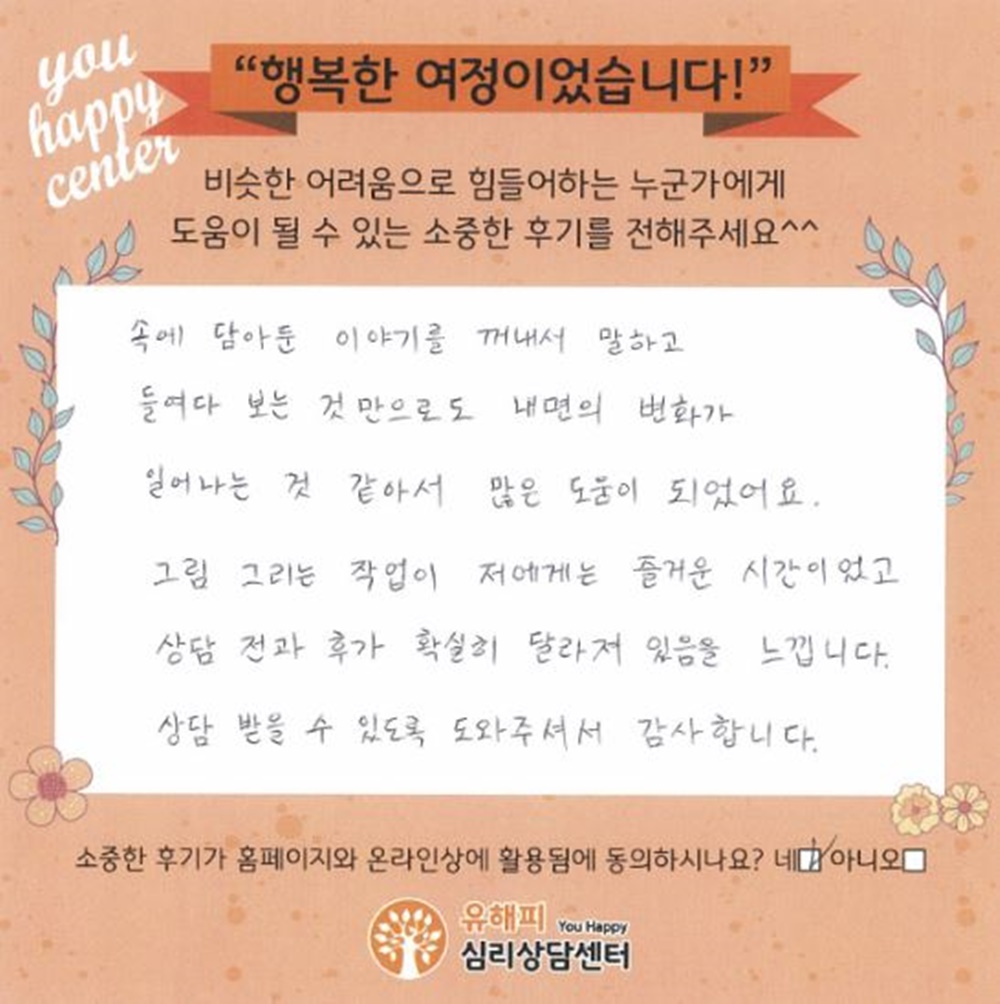 you
happy
center
“행복한 여정이었습니다!”
비슷한 어려움으로 힘들어하는 누군가에게
도움이 될 수 있는 소중한 후기를 전해주세요^^
속에 담아둔 이야기를 꺼내서 말하고
들여다 보는 것만으로도 내면의 변화가
일어나는 것 같아서 많은 도움이 되었어요.
그림 그리는 작업이 저에게는 즐거운 시간이었고
상담 전과 후가 확실히 달라져 있음을 느낍니다.
상담 받을 수 있도록 도와주셔서 감사합니다.
소중한 후기가 홈페이지와 온라인상에 활용됨에 동의하시나요? 네☑ 아니오□
유해피 You Happy
심리상담센터